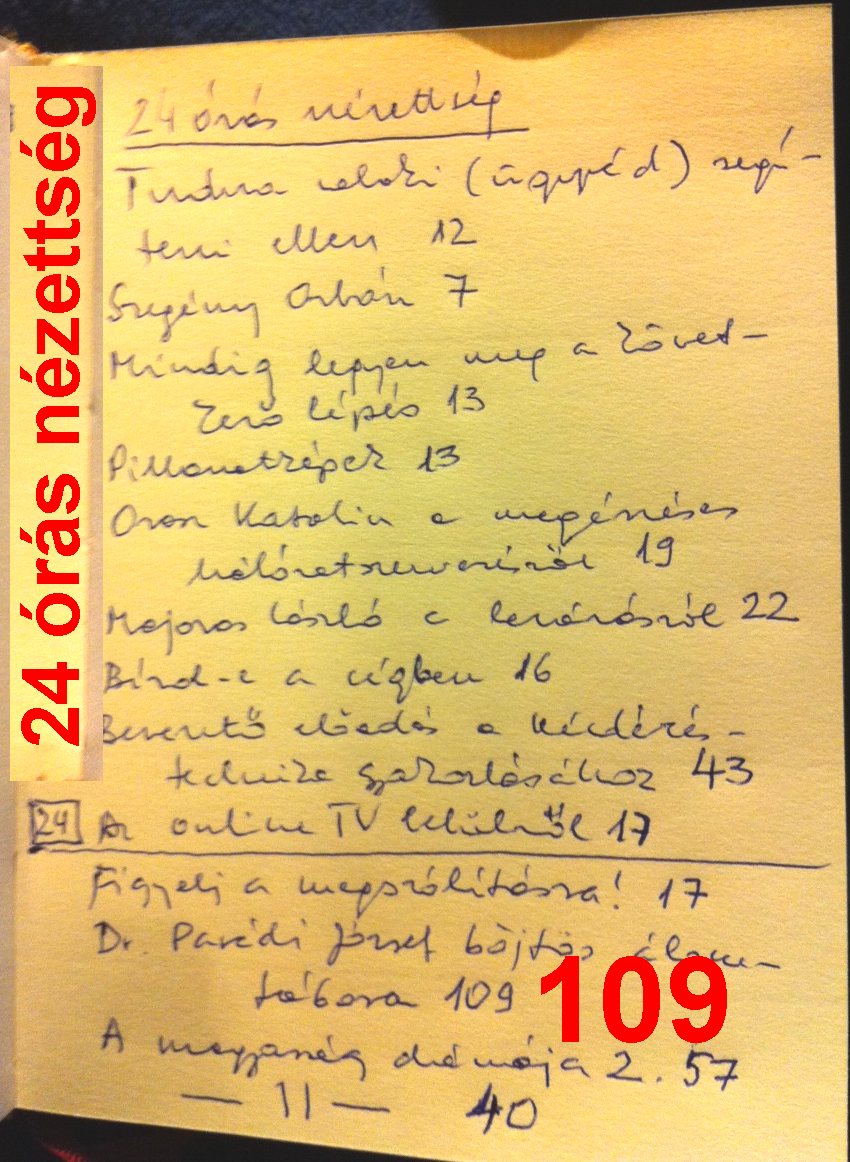 24 órás nézettség
24 órás nézettség
Tudna valaki (ügyvéd) segí-
teni ellen 12
Szegény Orbán 7
Mindig legyen meg a követ-
kező lépés 13
Pillanatképek 13
Oron Katalin a megérzéses
hálózatszervezésről 19
Majoros László a lezárásról 22
Bízol-e a cégben 16
Bevezető előadás a kérdezés-
technika gyakorlásához 43
24 Az online TV lelkületről 17
Figyelj a megszólításra! 17
Dr. Parádi József böjtös élem-
tábora 109
109
A magyarság drámája 2. 57
— 11 — 40